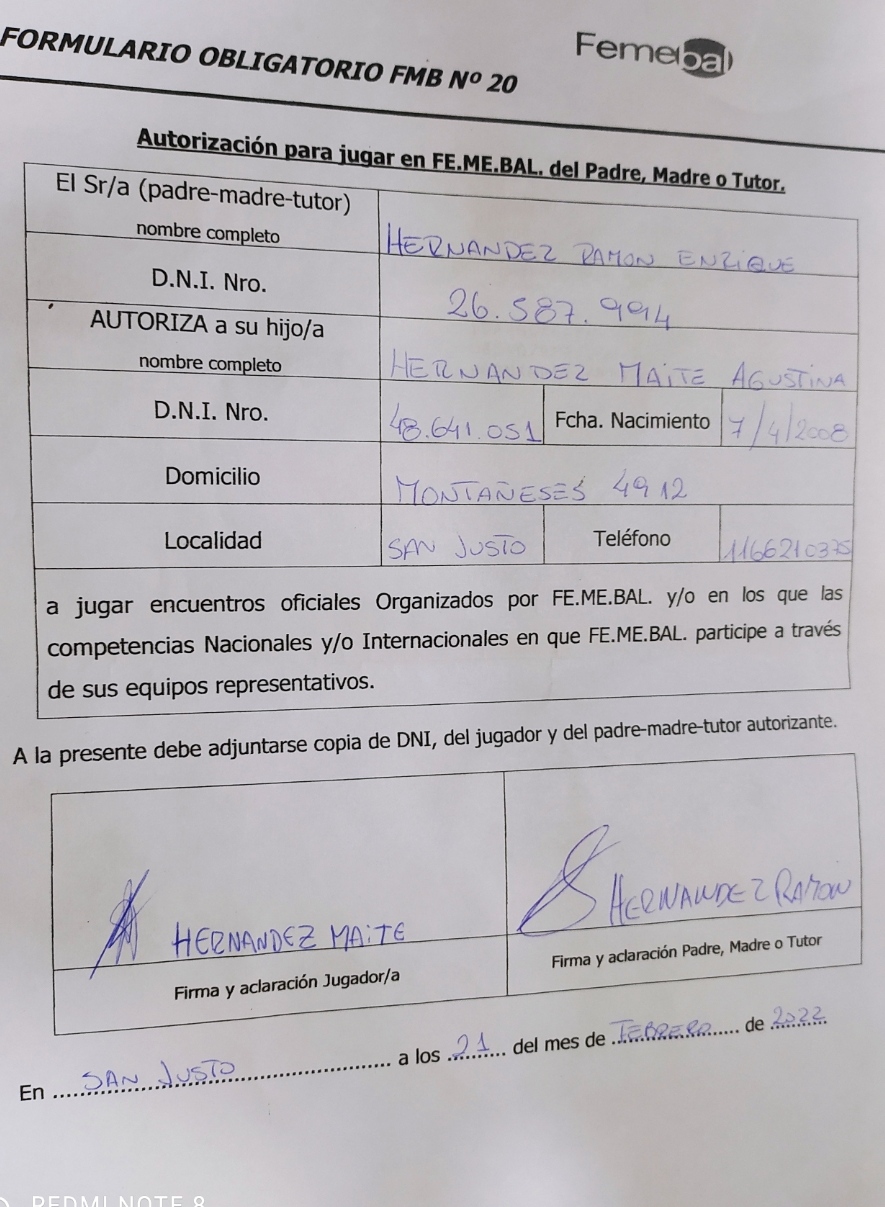 FORMULARIO OBLIGATORIO FMB Nº 20
Femebal
Autorización para jugar en FE.ME.BAL. del Padre, Madre o Tutor.
El Sr/a (padre-madre-tutor)
nombre completo
HERNANDEZ RAMON ENRIQUE
D.N.I. Nro.
26.587.994
AUTORIZA a su hijo/a
nombre completo
HERNANDEZ MAITE AGUSTINA
D.N.I. Nro.
48.641.051
Fcha. Nacimiento
7/4/2008
Domicilio
MONTAÑESES 4912
Localidad
SAN JUSTO
Teléfono
1166210375
a jugar encuentros oficiales Organizados por FE.ME.BAL. y/o en los que las
competencias Nacionales y/o Internacionales en que FE.ME.BAL. participe a través
de sus equipos representativos.
A la presente debe adjuntarse copia de DNI, del jugador y del padre-madre-tutor autorizante.
HERNANDEZ MAITE
HERNANDEZ RAMON
Firma y aclaración Jugador/a
Firma y aclaración Padre, Madre o Tutor
En SAN JUSTO a los 21 del mes de FEBRERO de 2022
REDMI NOTE 8